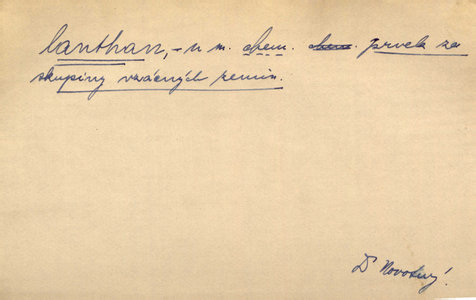 lanthan, -u m. chem. chem. prvek ze
skupiny vzácných zemin.
Dr Novotný!